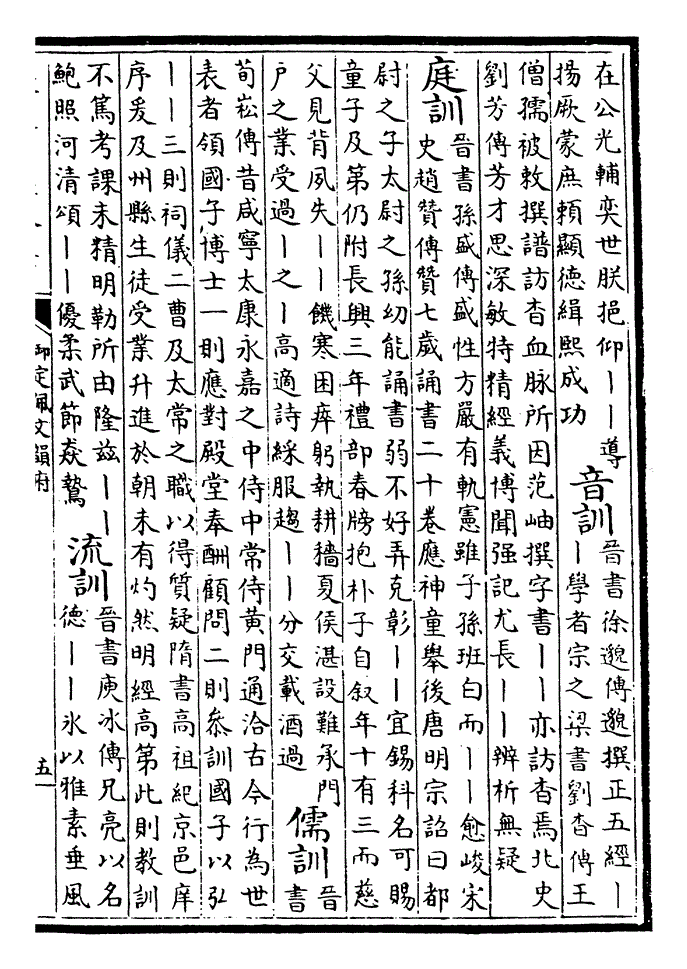 在公光輔奕世朕挹仰丨丨遵
揚厥蒙庶賴顯德緝熙成功
音訓
晉書徐邈傳邈撰正五經丨
丨學者宗之梁書劉杳傳王
僧孺被敕撰譜訪杳血脉所因范岫撰字書丨丨亦訪杳焉北史
劉芳傳芳才思深敏特精經義博聞强記尤長丨丨辨析無疑
庭訓
晉書孫盛傳盛性方嚴有軌憲雖子孫班白而丨丨愈峻宋
史趙贊傳贊七歲誦書二十卷應神童舉後唐明宗詔曰都
尉之子太尉之孫幼能誦書弱不好弄克彰丨丨宜錫科名可賜
童子及第仍附長興三年禮部春牓抱朴子自叙年十有三而慈
父見背夙失丨丨饑寒困瘁躬執耕穡夏侯湛設難承門
户之業受過丨之丨高適詩綵服趨丨丨分交載酒過
儒訓
晉
書
荀崧傳昔咸寧太康永嘉之中侍中常侍黄門通洽古今行為世
表者領國子博士一則應對殿堂奉酬顧問二則叅訓國子以弘
丨丨三則祠儀二曹及太常之職以得質疑隋書高祖紀京邑庠
序爰及州縣生徒受業升進於朝未有灼然明經高第此則教訓
不篤考課未精明勒所由隆兹丨丨
鮑照河清頌丨丨優柔武節焱鷙
流訓
晉書庾氷傳兄亮以名
德丨丨氷以雅素垂風
御定佩文韻府
五